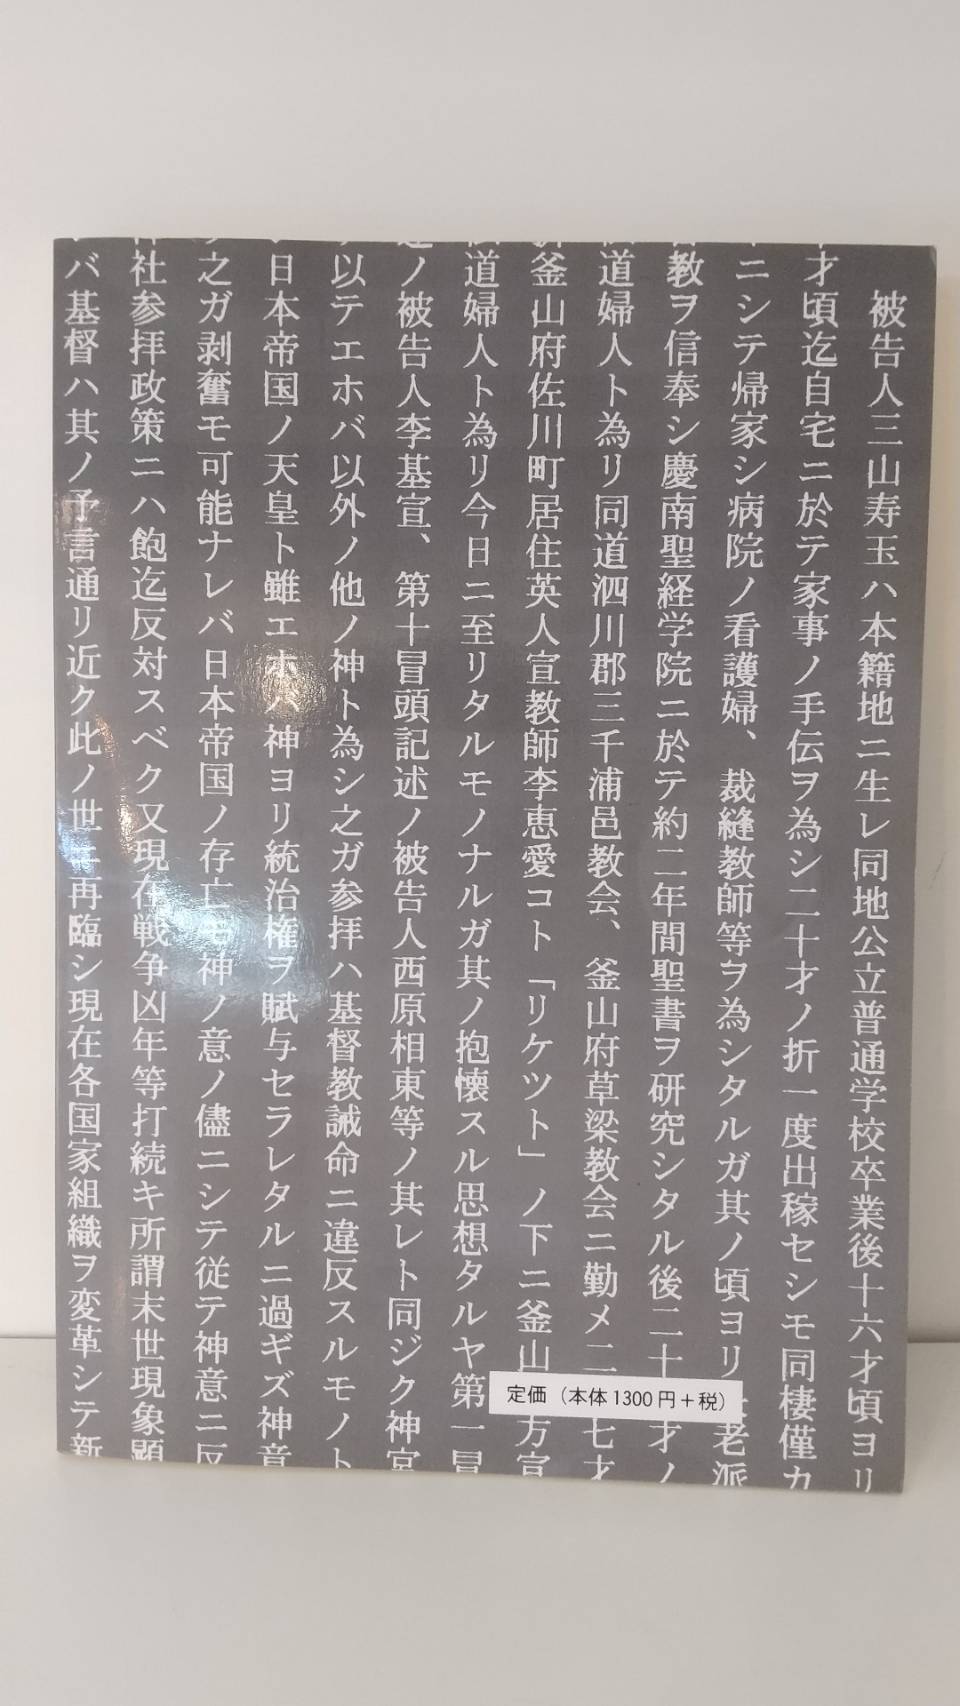 被告人三山寿玉ハ本籍地ニ生レ同地公立普通学校卒業後十六才頃ヨリ
才頃迄自宅ニ於テ家事ノ手伝ヲ為シ二十才ノ折一度出稼セシモ同棲僅カ
ニシテ帰家シ病院ノ看護婦、裁縫教師等ヲ為シタルガ其ノ頃ヨリ 老派
教ヲ信奉シ慶南聖経学院ニ於テ約二年間聖書ヲ研究シタル後二十 才ノ
道婦人ト為リ同道泗川郡三千浦邑教会、釜山府草梁教会ニ勤メ二 七才
釜山府佐川町居住英人宣教師李恵愛コト「リケツト」ノ下ニ釜山 方宣
道婦人ト為リ今日ニ至リタルモノナルガ其ノ抱懐スル思想タルヤ第一冒
ノ被告人李基宣、第十冒頭記述ノ被告人西原相東等ノ其レト同ジク神宮
以テエホバ以外ノ他ノ神ト為シ之ガ参拝ハ基督教誡命ニ違反スルモノト
日本帝国ノ天皇ト雖エホバ神ヨリ統治権ヲ賦与セラレタルニ過ギズ神意
之ガ剥奮モ可能ナレバ日本帝国ノ存亡モ神ノ意ノ儘ニシテ従テ神意ニ反
社参拝政策ニハ飽迄反対スベク又現在戦争凶年等打続キ所謂末世現象顕
バ基督ハ其ノ予言通リ近ク此ノ世ニ再臨シ現在各国家組織ヲ変革シテ新
定価(本体1300円+税)